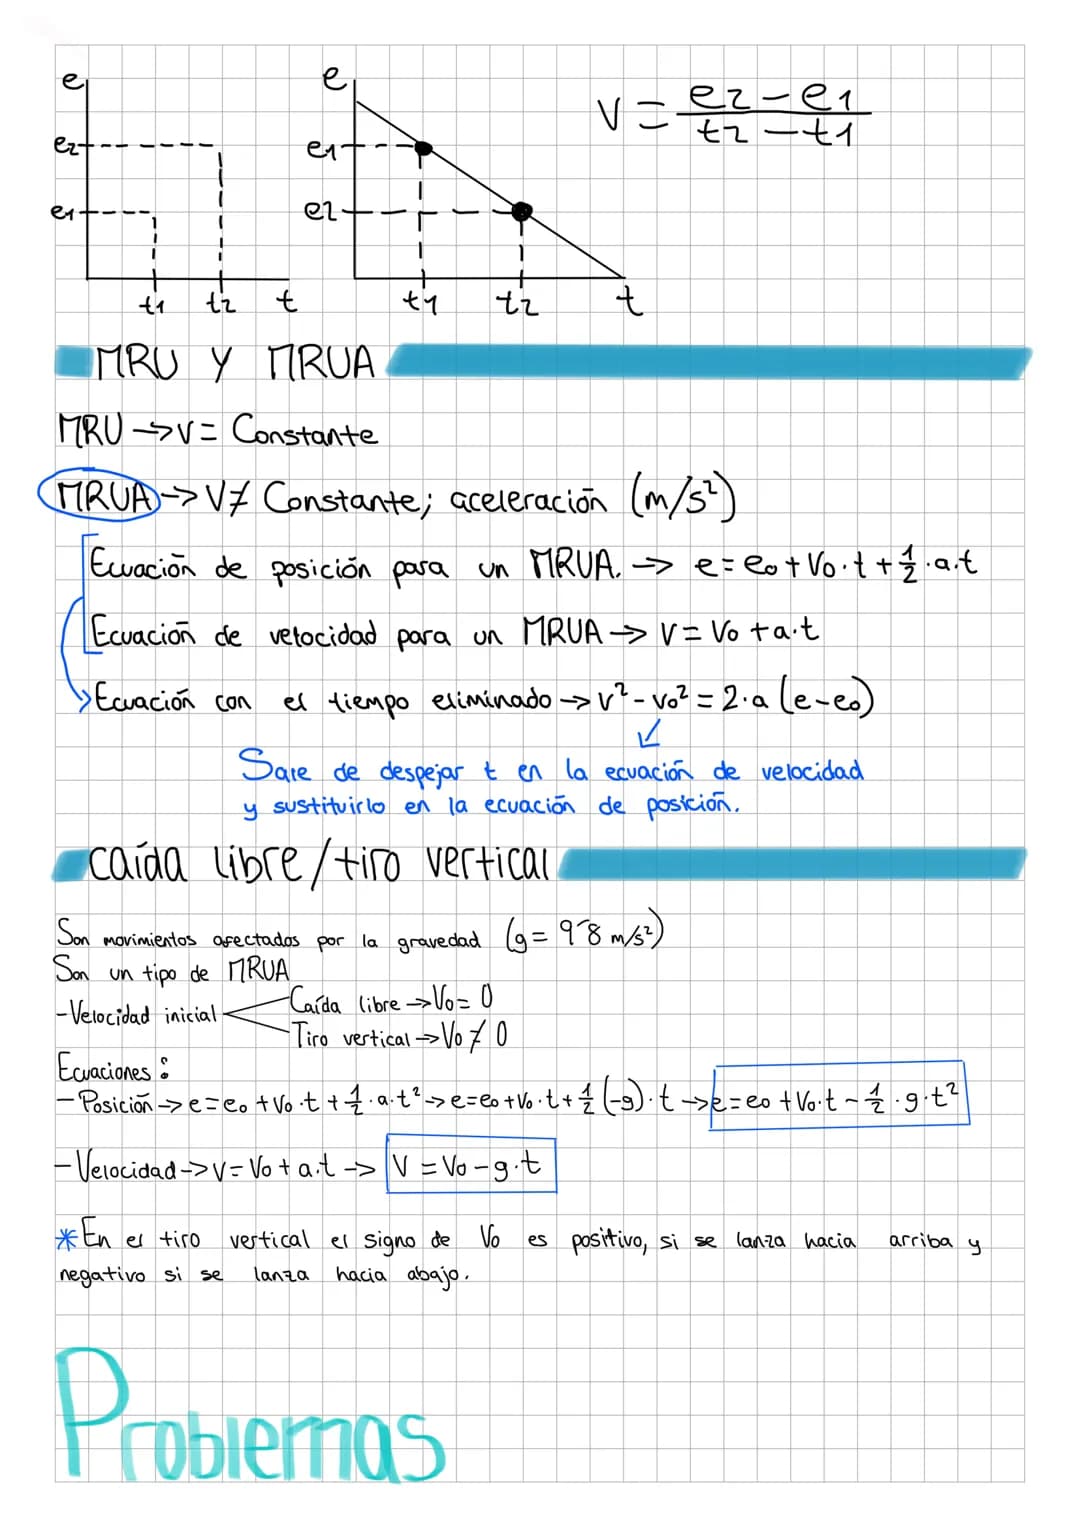 e
e2
e1
t1 t2 t
e
e1
e2
t1 t2 t
V = e2-e1 / t2-t1
MRU Y MRUA
MRU → V = Constante
MRUA → V ≠ Constante; aceleración (m/s²)
Ecuación de posición para un MRUA. → e = e₀ + V₀·t + 1/2·a·t
Ecuación de velocidad para un MRUA → V = V₀ + a·t
Ecuación con el tiempo eliminado → v² - v₀² = 2·a (e-e₀)
Sale de despejar t en la ecuación de velocidad
y sustituirlo en la ecuación de posición.
caída libre/tiro vertical
Son movimientos afectados por la gravedad (g = 9'8 m/s²)
Son un tipo de MRUA
-Velocidad inicial
Caída libre → V₀ = 0
Tiro vertical → V₀ ≠ 0
Ecuaciones:
-Posición → e = e₀ + V₀·t + 1/2·a·t² → e = e₀ + V₀·t + 1/2 (-g)·t → e = e₀ + V₀·t - 1/2·g·t²
-Velocidad → V = V₀ + a·t → V = V₀ - g·t
*En el tiro vertical el signo de V₀ es positivo, si se lanza hacia arriba y
negativo si se lanza hacia abajo.
Problemas